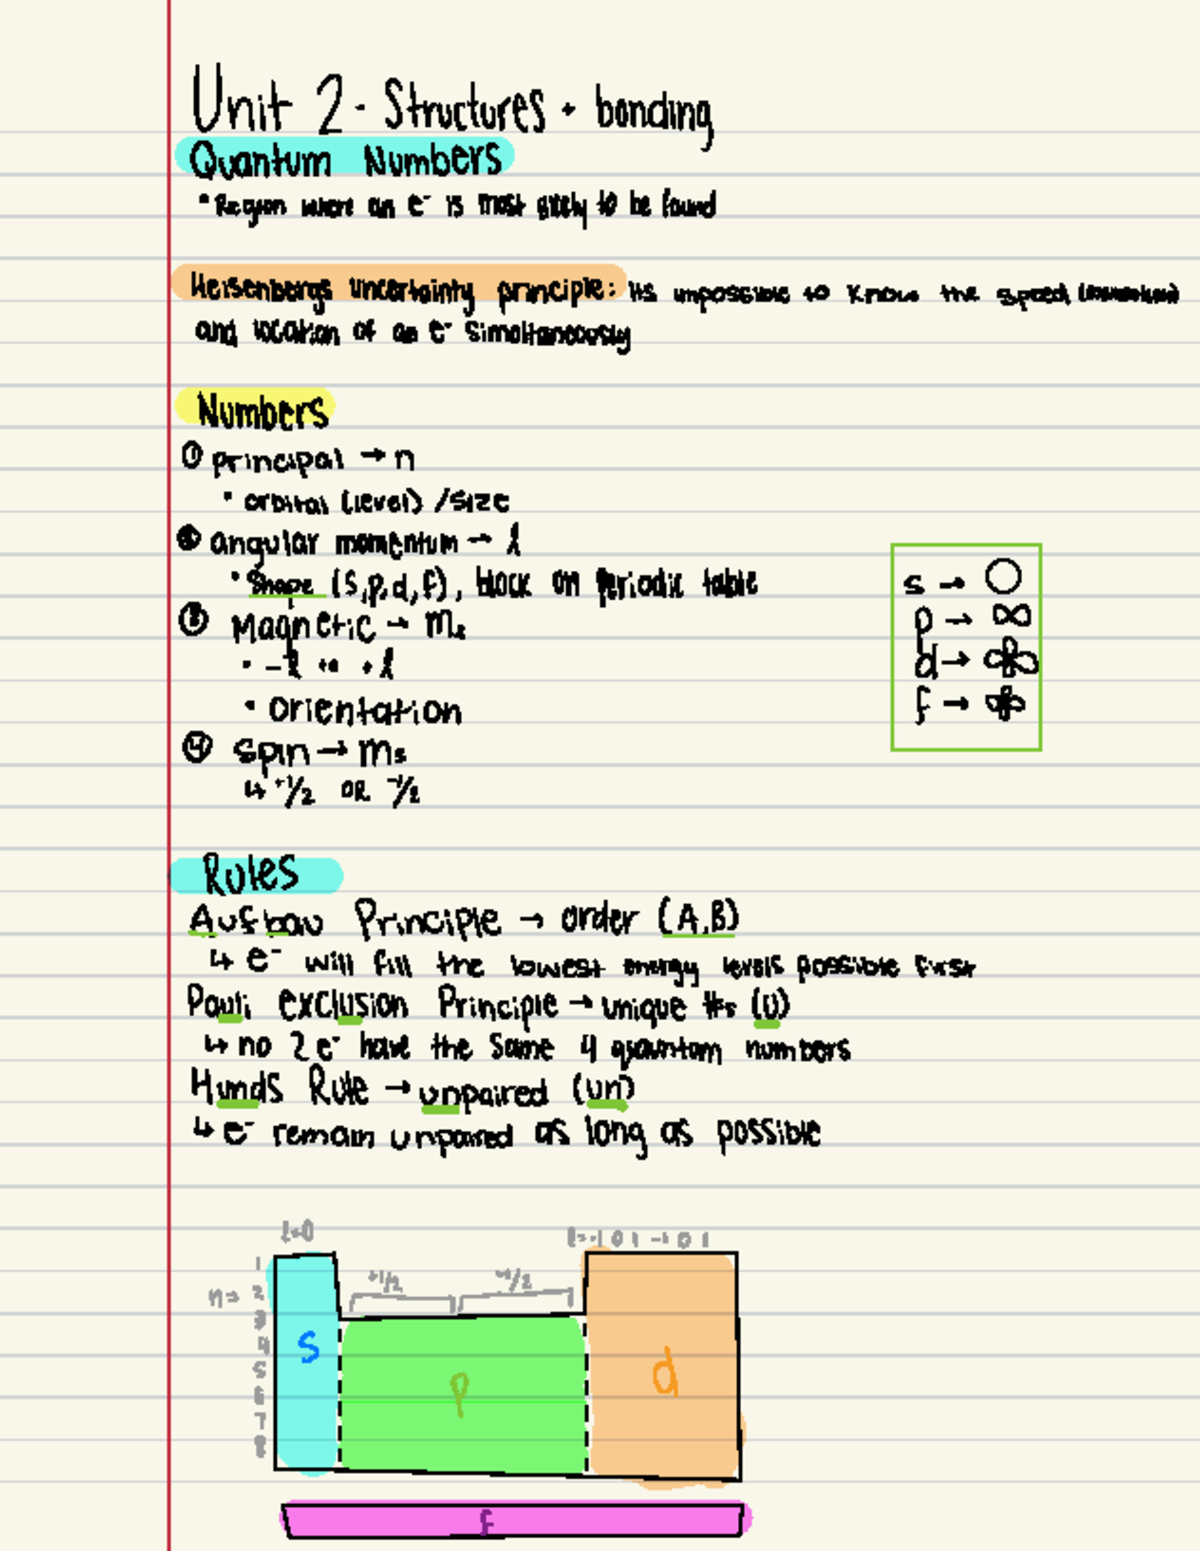 Unit 2 - Structures + bonding
Quantum Numbers
• Region where an e⁻ is most likely to be found
Heisenbergs uncertainty principle: its impossible to know the speed (momentum)
and location of an e⁻ simultaneously
Numbers
① principal → n
• orbital (level) /size
② angular momentum → l
• Shape (s,p,d,f), block on periodic table
s →
p → ∞
d →
f →
③ Magnetic → mₗ
• -l to +l
• orientation
④ spin → mₛ
↳ +1/2 OR -1/2
Rules
Aufbau Principle → order (A,B)
↳ e⁻ will fill the lowest energy levels possible first
Pauli exclusion Principle → unique #s (U)
↳ no 2 e⁻ have the same 4 quantum numbers
Hunds Rule → unpaired (un)
↳ e⁻ remain unpaired as long as possible
l=0
l=-1 0 1 -1 0 1
+1/2 -1/2
n=
1
2
3
4
5
6
7
8
s
p
d
f